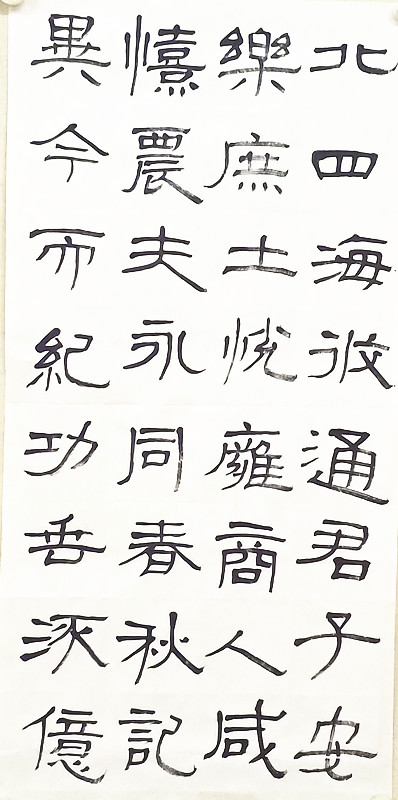 北四海攸通君子安
樂庶士悅雍商人咸
憘農夫永同春秋記
異今而紀功垂流億